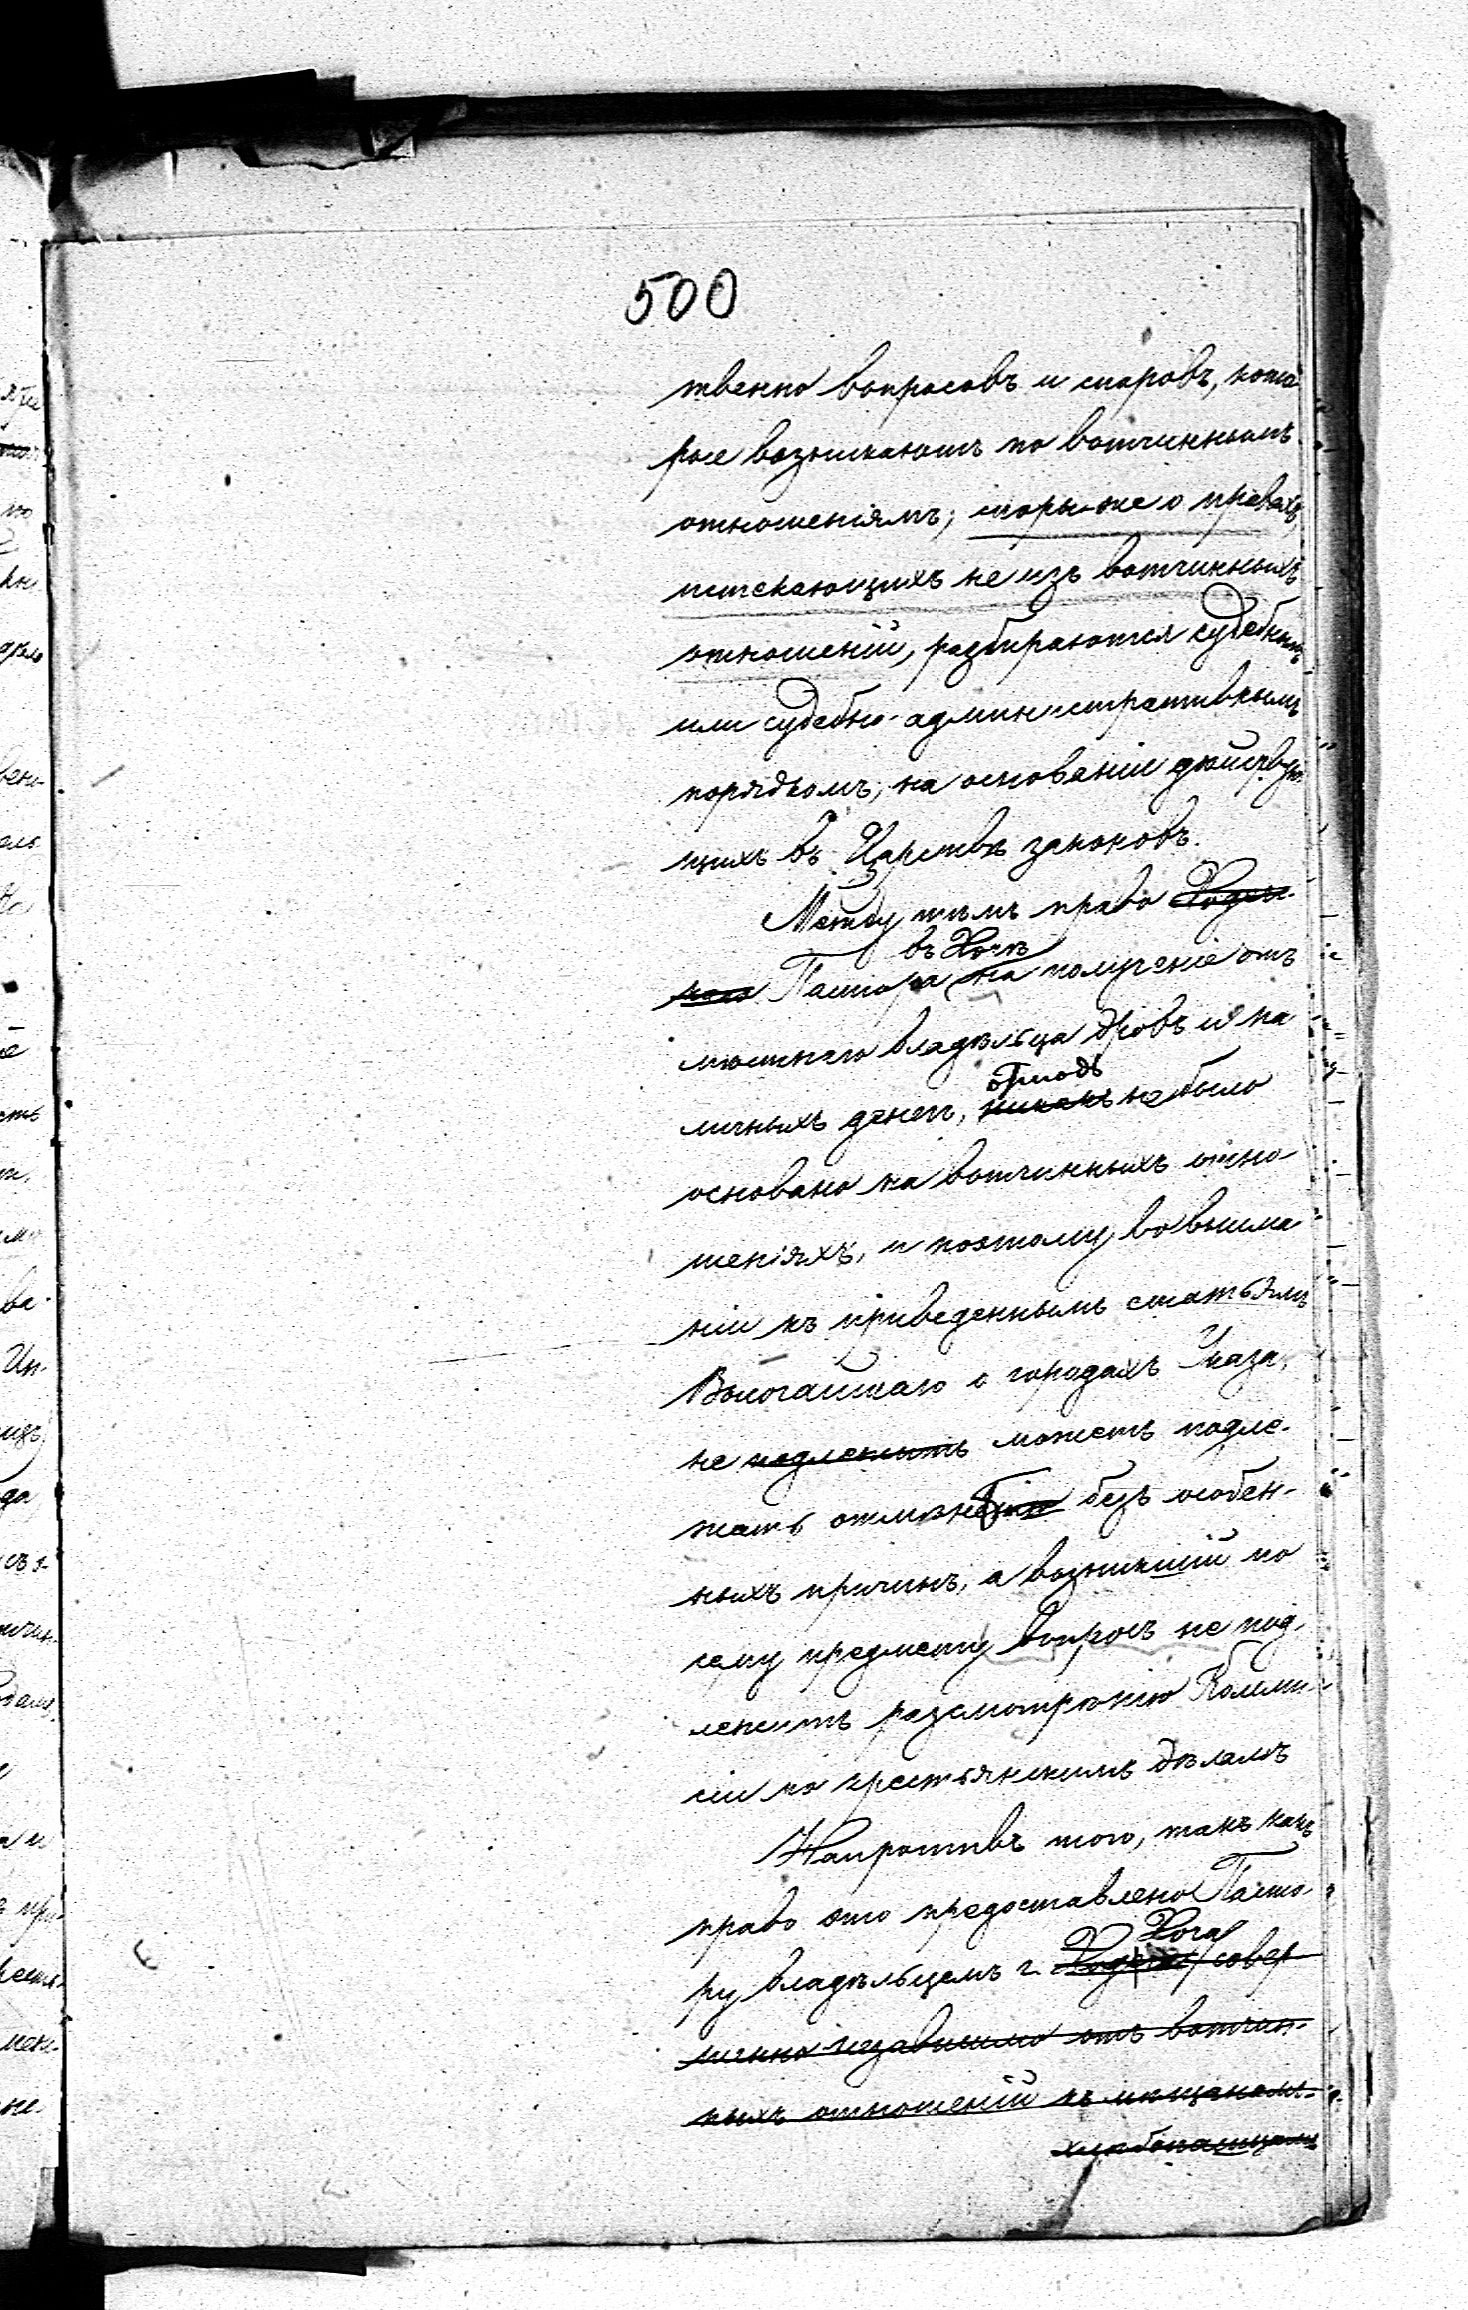 500
твенно вопросовъ и споровъ, кото
рые возникаютъ по вотчиннымъ
отношеніямъ; споры же о правахъ,
истекающихъ не изъ вотчинныхъ
отношеній, разбираются судебнымъ
или судебно-административнымъ
порядкомъ, на основаніи дѣйству
щихъ въ Царствѣ законовъ.
Между тѣмъ право
въ Хочѣ
Пастора на полученіе отъ
мѣстнаго владѣльца дровъ и на
отнюдь
личныхъ денегъ, никакъ не было
основано на вотчинныхъ отно
шеніяхъ, и поэтому во внима
ніи къ приведеннымъ статьямъ
Высочайшаго о городахъ Указа,
не подлежитъ можетъ подле-
жать отмѣнѣ безъ особен-
ныхъ причинъ, а возникшій по
сему предмету вопросъ не под
лежитъ разсмотрѣнію Комми
сіи по крестьянскимъ дѣламъ
Напротивъ того, такъ какъ
право это предоставлено Пасто
Хоча
ру владѣльцемъ г. совер
шенно независимо отъ вотчин-
ныхъ отношеній къ мѣщанамъ-
хлѣбопашцамъ